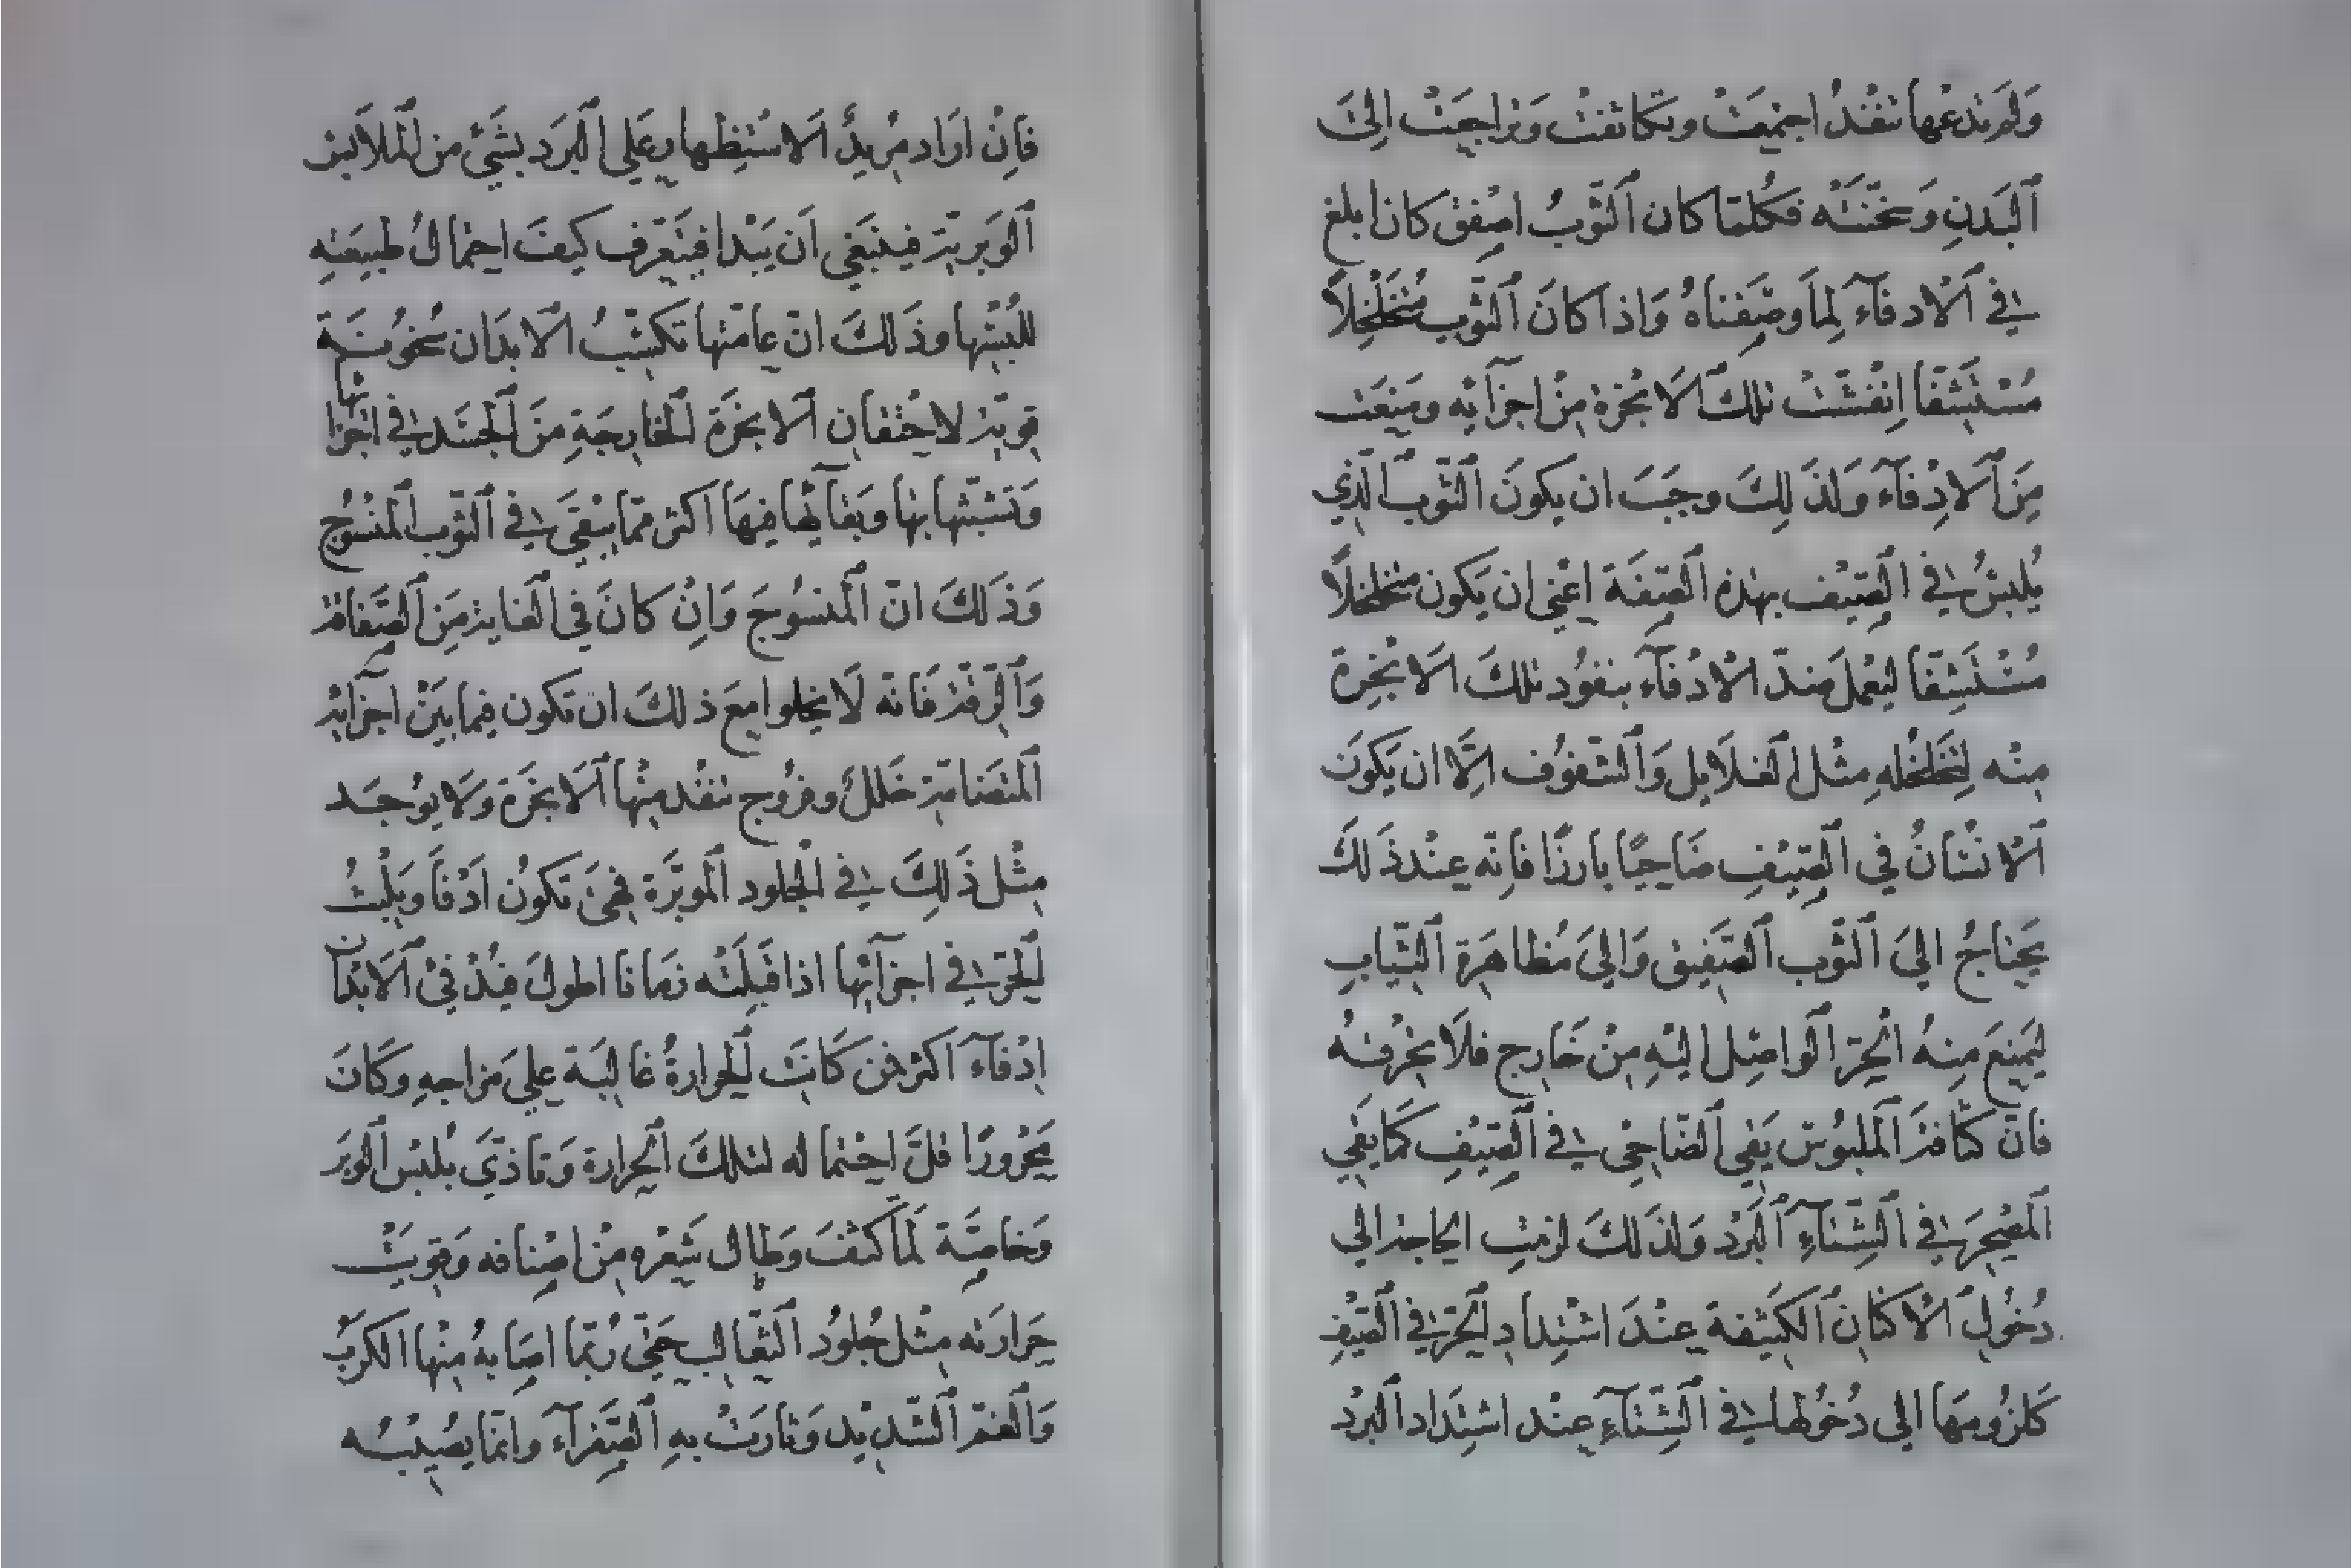 ولم تدعها تنفذ اجتمعت وتكاثفت وتراجعت الى
البدن وسخنته فكلما كان الثوب اصفق كان ابلغ
في الادفاء لما وصفناه واذا كان الثوب متخلخلا
مستشفا انفشت تلك الابخرة من اجزائه ومنعت
من الادفاء ولذلك وجب ان يكون الثوب الذي
يلبس في الصيف بهذه الصفة اعني ان يكون متخلخلا
مستشفا ليعمل ضد الادفاء بنفوذ تلك الابخرة
منه لتخلخله مثل الغلايل والشفوف الا ان يكون
الانسان في الصيف ضاحيا بارزا فانه عند ذلك
يحتاج الى الثوب الصفيق والى مظاهرة الثياب
ليمنع منه الحر الواصل اليه من خارج فلا يحرقه
فان كثافة الملبوس يقي الضاحي في الصيف كما يقي
المصحر في الشتاء البرد ولذلك لزمت الحاجة الى
دخول الاكنان الكثيفة عند اشتداد الحر في الصيف
كلزومها الى دخولها في الشتاء عند اشتداد البرد
فان اراد مريد الاستظهار على البرد بشئ من الملابس
الوبرية فينبغي ان يبدا فيتعرف كيف احتمال طبيعته
للبسها وذلك ان عامتها تكسب الابدان سخونة
قوية لاحتقان الابخرة الخارجة من الجسد في اجزائها
وتشبثها بها وبقائها فيها اكثر مما يبقى في الثوب المنسوج
وذلك ان المنسوج وان كان في الغاية من الصفاقة
والرقة فانه لا يخلوا مع ذلك ان تكون فيما بين اجزائه
المتضامة خلل وفروج تنفذ منها الابخرة ولا يوجد
مثل ذلك في الجلود الموبرة فهي تكون ادفا ويلبث
الحر في اجزائها اذا قبلته زمانا اطول فيدفئ الابدان
ادفاء اكثر فمن كانت الحرارة غالبة على مزاجه وكان
محرورا قل احتماله لتلك الحرارة وتاذى بلبس الوبر
وخاصة لما كثف وطال شعره من اصنافه وقويت
حرارته مثل جلود الثعالب حتى ربما اصابه منها الكرب
والغم الشديد وثارت به الصفراء وانما يصيبه